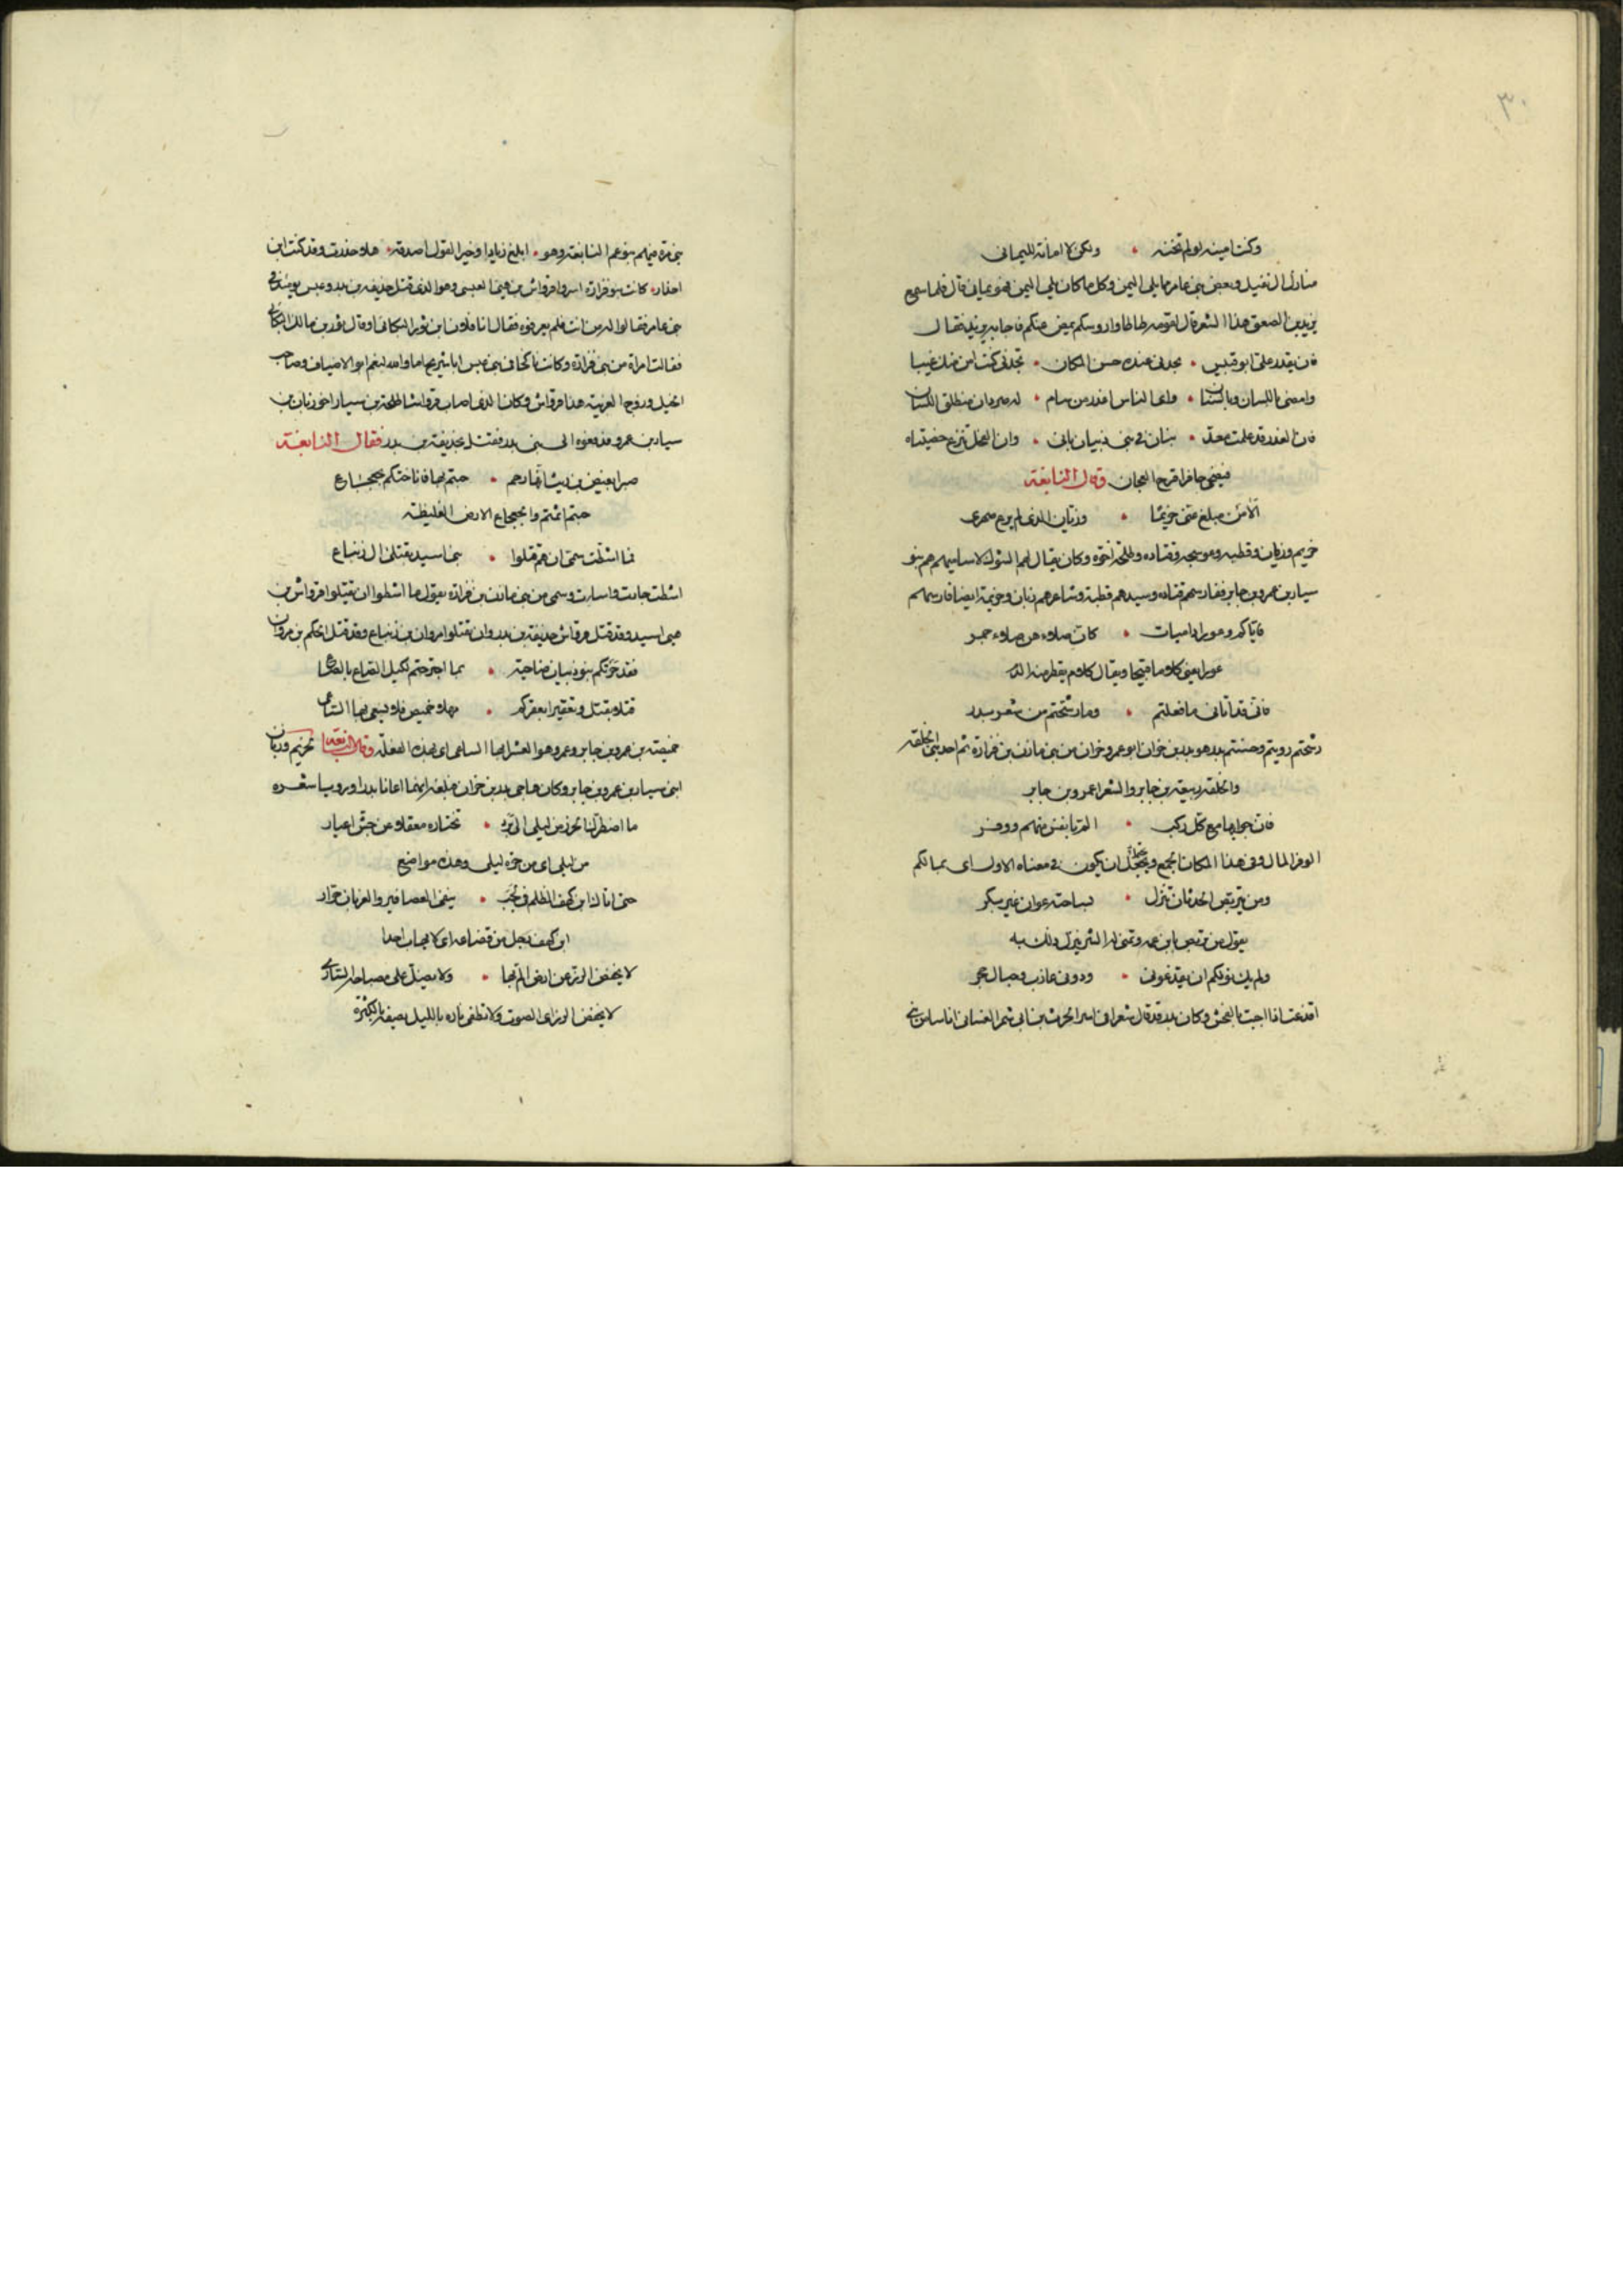 ٣٠
وكنت امينه لو لم تخنه • ولكن لا امانة لليمانى
منازل ال نفيل وبعض بنى عامر مما يلى اليمن وكل ما كان يلى اليمن فهو يمانى قال فلما سمع
يزيد بن الصعق هذا الشعر قال لقومه طاطاوا روسكم فاجابه يزيد فقال
فان يقدر على ابو قبيس • تجدنى عنده حسن المكان • تجدنى كنت امن منك غيبا
وامضى باللسان وبالسنان • واى الناس اغدر من سام • له صردان منطلق اللسان
فان الغدر قد علمت معد • بناه فى بنى ذبيان بانى • وان الفحل تنزع خصيتاه
فيضحى جافرا قرح العجان وقال النابغة
الا من مبلغ عنى خزيما • وزبان الذى لم يرع صهرى
خزيم وزبان وقطبه وعوسجه وقتاده وطلحه اخوه وكان يقال لهم الشوك لاساميهم هم بنو
سيار بن عمرو بن جابر ففارسهم قتاده وسيدهم قطبة وشاعرهم زبان وخزيمة ايضا فارسهم
فاياكم وعورا داميات • كان صلاءهن صلاء جمر
عورا يعنى كلاما قبيحا ويقال كلام يقطر منه الدم
فانى قد اتانى ما فعلتم • وما رشحتم من شعر بدر
رشحتم رويتم وحسنتم بدر هو بدر بن حزان ابو عمرو حزان من بنى مازن بن فزارة ثم احد بنى الخلفه
والخلفه ربيعة بن جابر والشعرا عمرو بن جابر
فان جوابها مع كل ركب • منهم ووفر
الوفر المال وفى هذا المكان الجمع ان يكون فى معناه الاول اى بمالكم
ومن يتربص الحدثان تنزل • بساحته عوان غير بكر
يقول من تربص بابن عمه وتمنى له الشر نزل ذلك به
ولم يك نولكم ان تقذعونى • ودونى عازب وجبال حجر
اقذعت اذا اجبت بالفحش وكان بدر قد قال شعرا فى اسر الحرث بن ابى شمر الغسانى اناسا من بنى
بنى مرة فيهم بنو عم النابغة وهو • ابلغ زيادا وخير القول اصدقه • هلا حذرت وقد كنت ابن
احذار • كانت بنو فزارة اسروا قرواش بن هنى العبسى وهو الذى قتل حذيفه بن بدر وعبس يومئذ فى
بنى عامر فقالوا له من انت فلم يعرفوه فقال انا فلان ابن ثور البكائى او قال ثور بن مالك البكائى
فقالت امراة من بنى فزارة وكانت ناكحا فى بنى عبس ابا شريح اما والله لنعم ابو الاضياف وصاحب
الخيل وزوج الغريبة هذا قرواش وكان الذى اصاب قرواشا طلحة بن سيار اخو زبان بن
سيار بن عمرو فدفعوه الى بنى بدر فقتل بحذيفة بن بدر فقال النابغة
صبرا بغيض بن ريث انها رحم • حبتم بها فاناختكم بجعجاع
حبتم اثمتم والجعجاع الارض الغليظة
فما اشطت سمى ان هم قتلوا • بنى اسيد بقتلى ال زنباع
اشطت جارت واسارت وسمى من بنى مازن بن فزارة يقول ما اشطوا ان يقتلوا قرواش بن
هنى اسيد وقد قتل قرواش حذيفة بن بدر وان يقتلوا مروان بن زنباع وقد قتل الحكم بن مروان
فقد جزتكم بنو ذبيان ضاحية • بما اجترحتم لكيل الصاع بالصاع
قتلا بقتل وتعقيرا بعقركم • مهلا حميض فلا يسعى بها الساعى
حميصة بن عمرو بن جابر وعمرو هو العشرا بها الساعى اى بهذه الفعلة وقال النابغة لخزيم وزبان
ابنى سيار بن عمرو بن جابر وكان هاجى بدر بن حزان فبلغه انهما اعانا بدرا ورويا شعره
ما اضطرك الحرز من ليلى الى برد • تختاره معقلا عن جش اعيار
من ليلى اى من حرة ليلى وهذه مواضع
حتى اتاك ابن كهف الظلم فى لجب • ينفى العصافير والغربان جرار
ابن كهف رجل من قضاعه اى لا يهاب احدا
لا يخفض الرز عن ارض الم بها • ولا يضل على مصباحه السارى
لا يخفض الرز اى الصوت ولا تطفى ناره بالليل يصفه بالكثرة